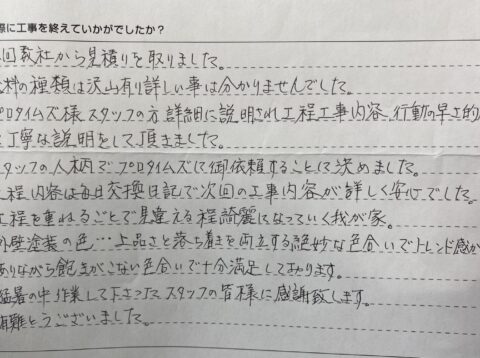 際に工事を終えていかがでしたか?
回数社から見積りを取りました。
料の種類は沢山有り詳しい事は分かりませんでした。
プロタイムズ様スタッフの方詳細に説明され工程工事内容、行動の早さ的
丁寧な説明をして頂きました。
スタッフの人柄でプロタイムズに御依頼することに決めました。
工程内容は毎日交換日記で次回の工事内容が詳しく安心でした。
工程を重ねるごとで見違える程綺麗になっていく我が家。
外壁塗装の色…上品さと落ち着きを両立する絶妙な色合いでトレンド感が
ありながら飽きがこない色合いで十分満足しております。
猛暑の中作業して下さったスタッフの皆様に感謝致します。
有難とうございました。